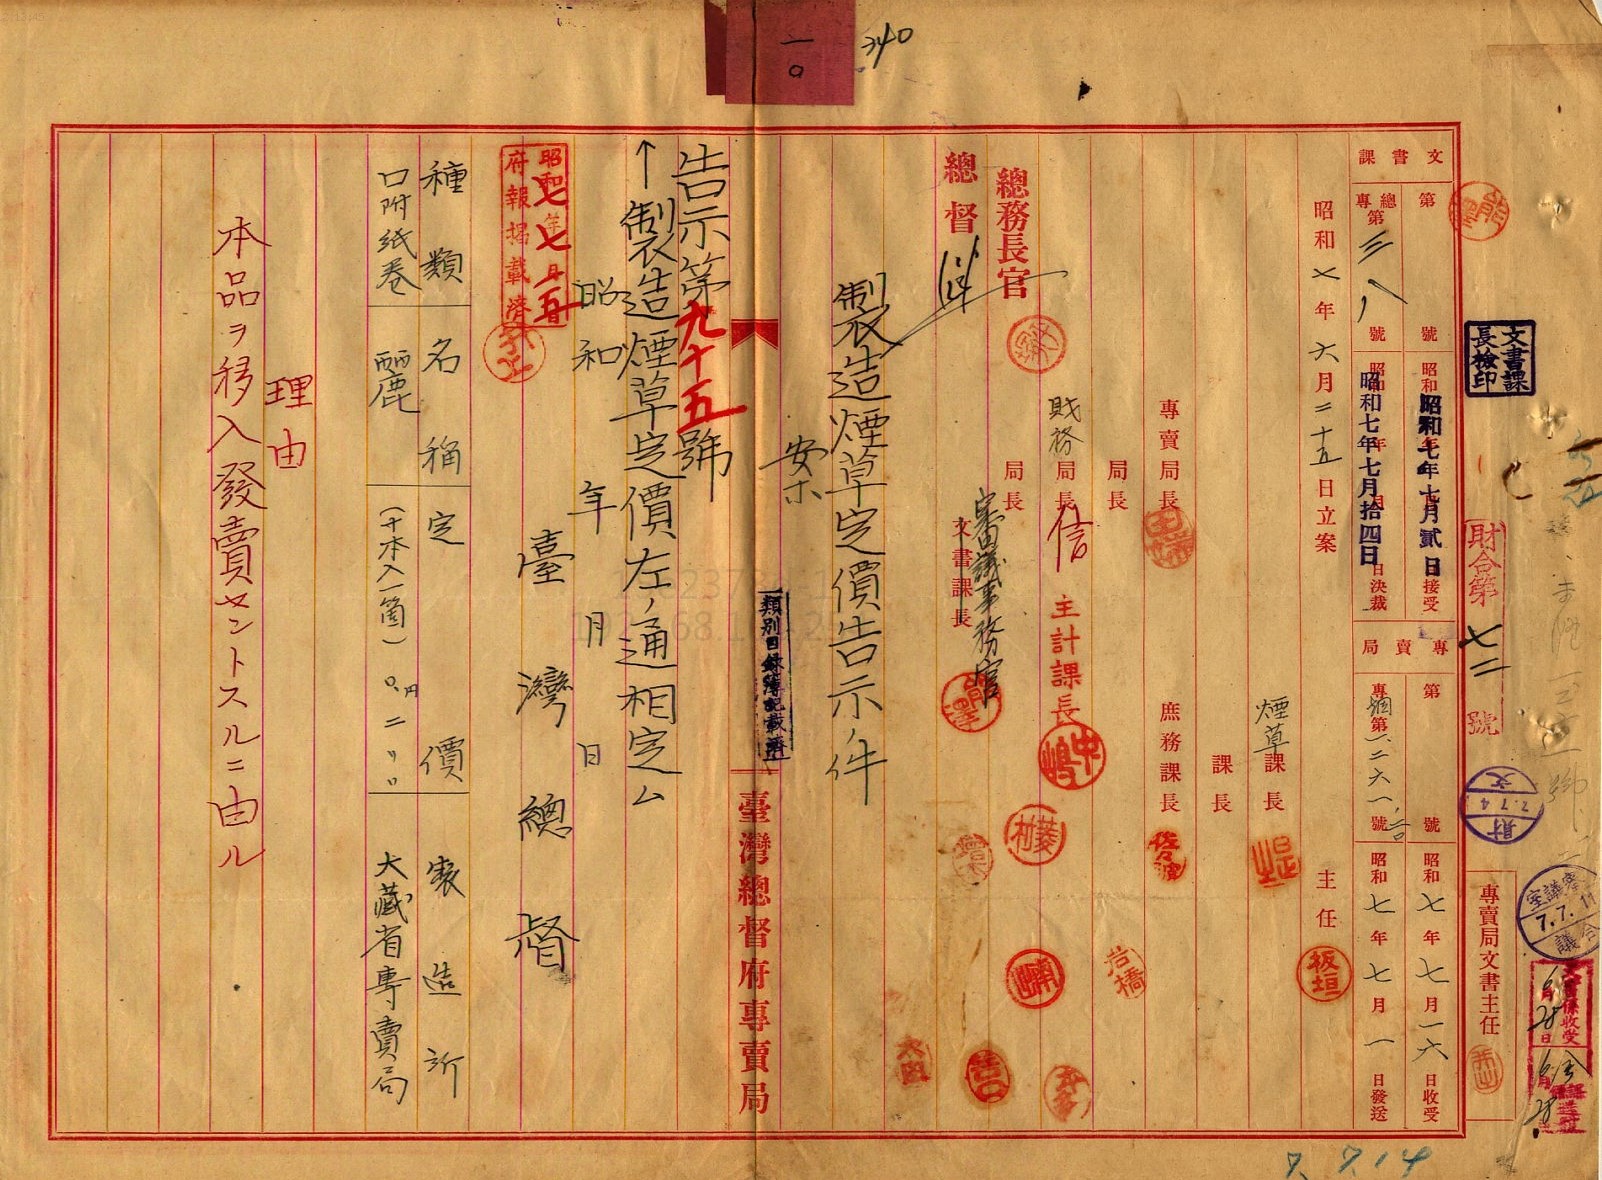 一〇
340
文書課
第 號 昭和七年七月貳日接受
總專第三八一號 昭和七年七月拾四日決裁
專賣局
第 號 昭和七年七月一六日收受
專烟第一二六一號 昭和七年七月一日發送
昭和七年六月二十五日立案
主任 板垣
煙草課長
課長
專賣局長
庶務課長
局長
財務局長
主計課長
局長
審議事務官
文書課長
總務長官
總督
製造煙草定價告示ノ件
案
類別目錄簿記載濟
臺灣總督府專賣局
告示第九十五號
製造煙草定價左ノ通相定ム
昭和 年 月 日
臺灣總督
昭和七年七月二五日
府報揭載濟
種類 名稱 定價 製造所
口附紙卷 麗 (十本入一箇) 大藏省專賣局
理由
本品ヲ移入發賣セントスルニ由ル
文書課長檢印
財合第七二號
財 7.7.4 文
審議室 7.7.11 合議
專賣局文書主任
7.7.14